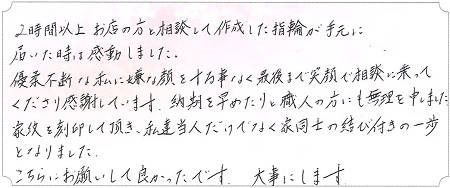 2時間以上お店の方と相談して作成した指輪が手元に
届いた時は感動しました。
優柔不断な私に嫌な顔をする事なく最後まで笑顔で相談に乗って
くださり感謝しています。納期を早めたりと職人の方にも無理を申しました
家紋を刻印して頂き、私達当人だけでなく家同士の結び付きの一歩
となりました。
こちらにお願いして良かったです。大事にします